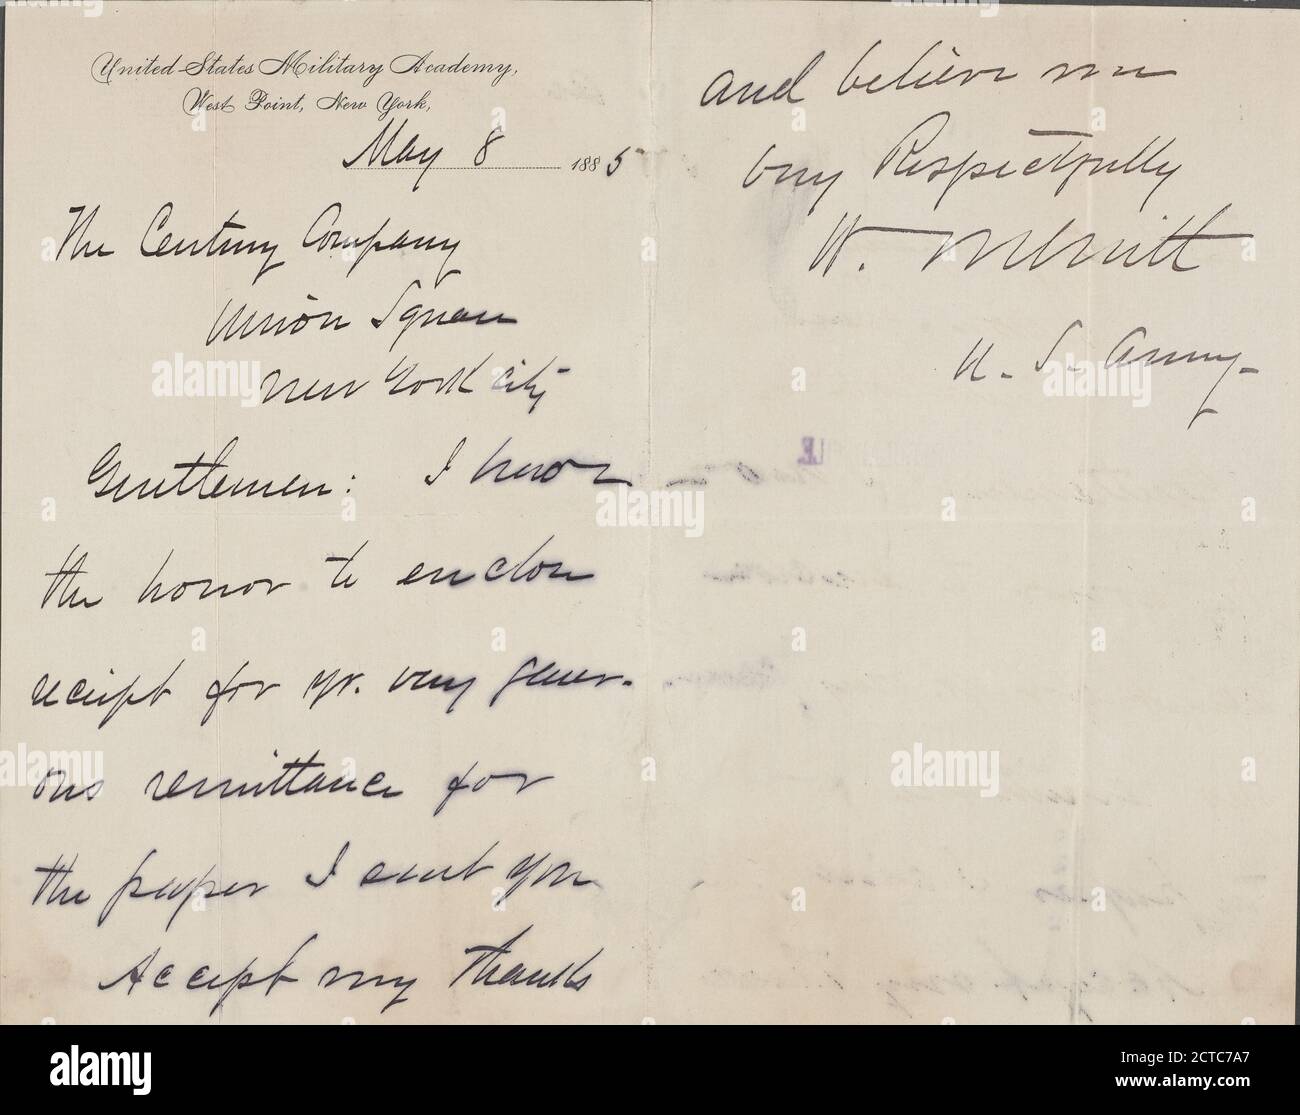 United States Military Academy,
West Point, New York,
May 8 1885
The Century Company
Union Square
New York City
Gentlemen: I have
the honor to enclose
receipt for yr. very gener-
ous remittance for
the paper I sent you
Accept my thanks
and believe me
Very Respectfully
W. Merritt
U. S. Army.
alamy
Image ID: 2CTC7A7
www.alamy.com